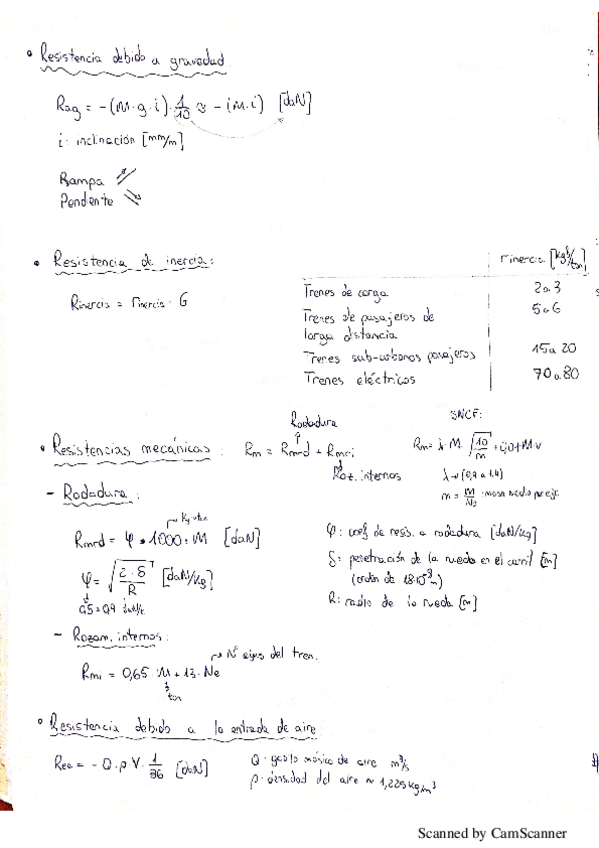 • Resistencia debido a gravedad
Rag = -(M·g·i)·1/10 ≈ -(M·i) [daN]
i: inclinación [mm/m]
Rampa
Pendente
• Resistencia de inercia:
rinercia [kgf/ton]
Rinercia = rinercia · G
Trenes de carga 2 a 3
Trenes de pasajeros de larga distancia 5 a 6
Trenes sub-urbanos pasajeros 15 a 20
Trenes eléctricos 70 a 80
• Resistencias mecánicas: Rm = Rmrd + Rmri
Rodadura
Roz. internos
SNCF:
Rm = λ·M·√10/m + 0,01·M·v
λ → (0,9 a 1,4)
m = M/Ne : masa media por eje
- Rodadura:
Rmrd = φ · 1000 · M [daN]
φ = √i·δ/R [daN/kg]
φ: coef de resis. a rodadura [daN/kg]
δ: penetración de la rueda en el carril [m]
(orden de
R: radio de la rueda [m]
- Rozam. internos:
Nº ejes del tren.
Rmi = 0,65·M + 13·Ne
ton
• Resistencia debido a la entrada de aire
Rea = -Q·ρ·V·1/36 [daN]
Q: gasto másico de aire m³/s
ρ: densidad del aire ≈ 1,225 kg/m³
Scanned by CamScanner